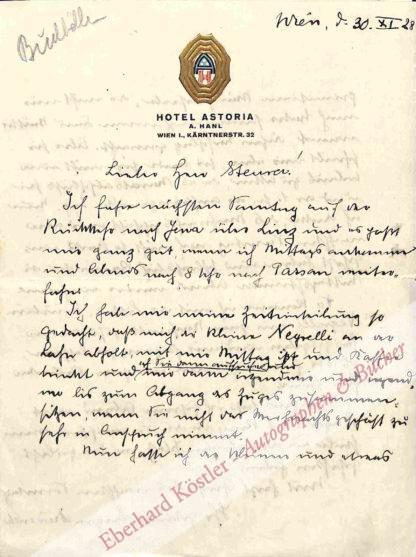 Wien, d. 30. XI. 28
HOTEL ASTORIA
A. HANL
WIEN I., KÄRNTNERSTR. 32
Lieber Herr Steurer!
Ich fahre nächsten Sonntag auf der
Rückkehr nach Jena über Linz und es paßt
mir ganz gut, wenn ich Mittags ankomme
und Abends nach 8 Uhr nach Passau weiter-
fahre.
Ich habe mir meine Zeiteinteilung so
gedacht, daß mich der kleine Negrelli an der
Bahn abholt, mit mir Mittag ißt und Kaffee
trinkt und
ich Sie dann aufsuche und
wir dann irgendwo
wo bis zum Abgang des Zuges zusammen-
sitzen, wenn Sie nicht das Weihnachtsgeschäft zu
sehr in Anspruch nimmt.
Nun hätte ich in Wien und etwas
Eberhard Köstler - Autographen & Bücher